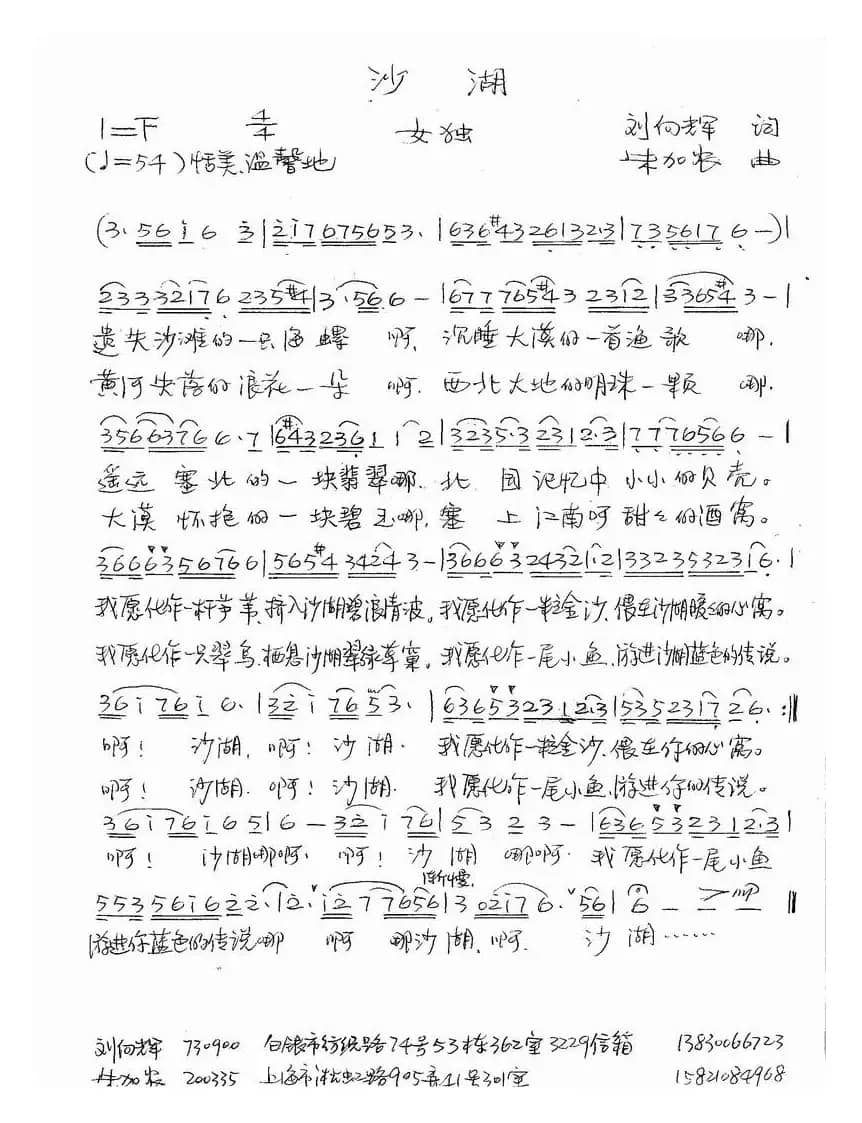 沙 湖
1=F 4/4 女独 刘向辉 词
(♩=54)恬美、温馨地 朱加农 曲
(3· 5 6 i 6 3|2 i 7 6 7 5 6 5 3·|6 3 6 #4 3 2 6 1 3 2·3|7 3 5 6 1 7 6 -)|
2 3 3 3 2 i 7 6 2 3 5 #4|3·5 6 6 -|6 7 7 7 6 5 #4 3 2 3 1 2|3 3 6 5 #4 3 -|
遗失沙滩的一只海螺 啊, 沉睡大漠的一首渔歌 哪,
黄河失落的浪花一朵 啊, 西北大地的明珠一颗 哪,
3 5 6 6 3 7 6 6·7|6 #4 3 2 3 6 1 1 2|3 2 3 5·3 2 3 1 2·3|7 7 7 6 5 6 6 -|
遥远 塞北的一块翡翠哪, 北 国记忆中小小的贝壳。
大漠 怀抱的一块碧玉哪, 塞 上江南呵甜甜的酒窝。
3 6 6 6 3 5 6 7 6 6|5 6 5 #4 3 4 2 4 3 -|3 6 6 6 3 2 4 3 2 1 2|3 3 2 3 5 3 2 3 1 6·|
我愿化作一杆芦苇,挤入沙湖碧浪清波。我愿化作一粒金沙、偎在沙湖暖暖的心窝。
我愿化作一只翠鸟,栖息沙湖翠绿草窠。我愿化作一尾小鱼,游进沙湖蓝色的传说。
3 6 i 7 6 i 6·|3 2 i 7 6 5 3·|6 3 6 5 3 2 3 1 2·3|5 3 5 2 3 1 7 2 6·:‖
啊! 沙湖, 啊! 沙湖· 我愿化作一粒金沙、偎在你的心窝。
啊! 沙湖· 啊! 沙湖· 我愿化作一尾小鱼,游进你的传说。
3 6 i 7 6 i 6 5|6 - 3 2 i 7 6|5 3 2 3 -|6 3 6 5 3 2 3 1 2·3|
啊! 沙湖哪啊· 啊! 沙湖 哪啊· 我愿化作一尾小鱼
渐慢
5 5 3 5 6 i 6 2 2·|2· i 2 7 7 6 5 6|3 0 2 i 7 6· 5 6|6 - - -‖
游进你蓝色的传说哪 啊 哪沙湖, 啊· 沙 湖……
刘向辉 730900 白银市纺织路74号53栋362室3229信箱 13830066723
朱加农 200335 上海市淞虹路905弄41号301室 15821084968